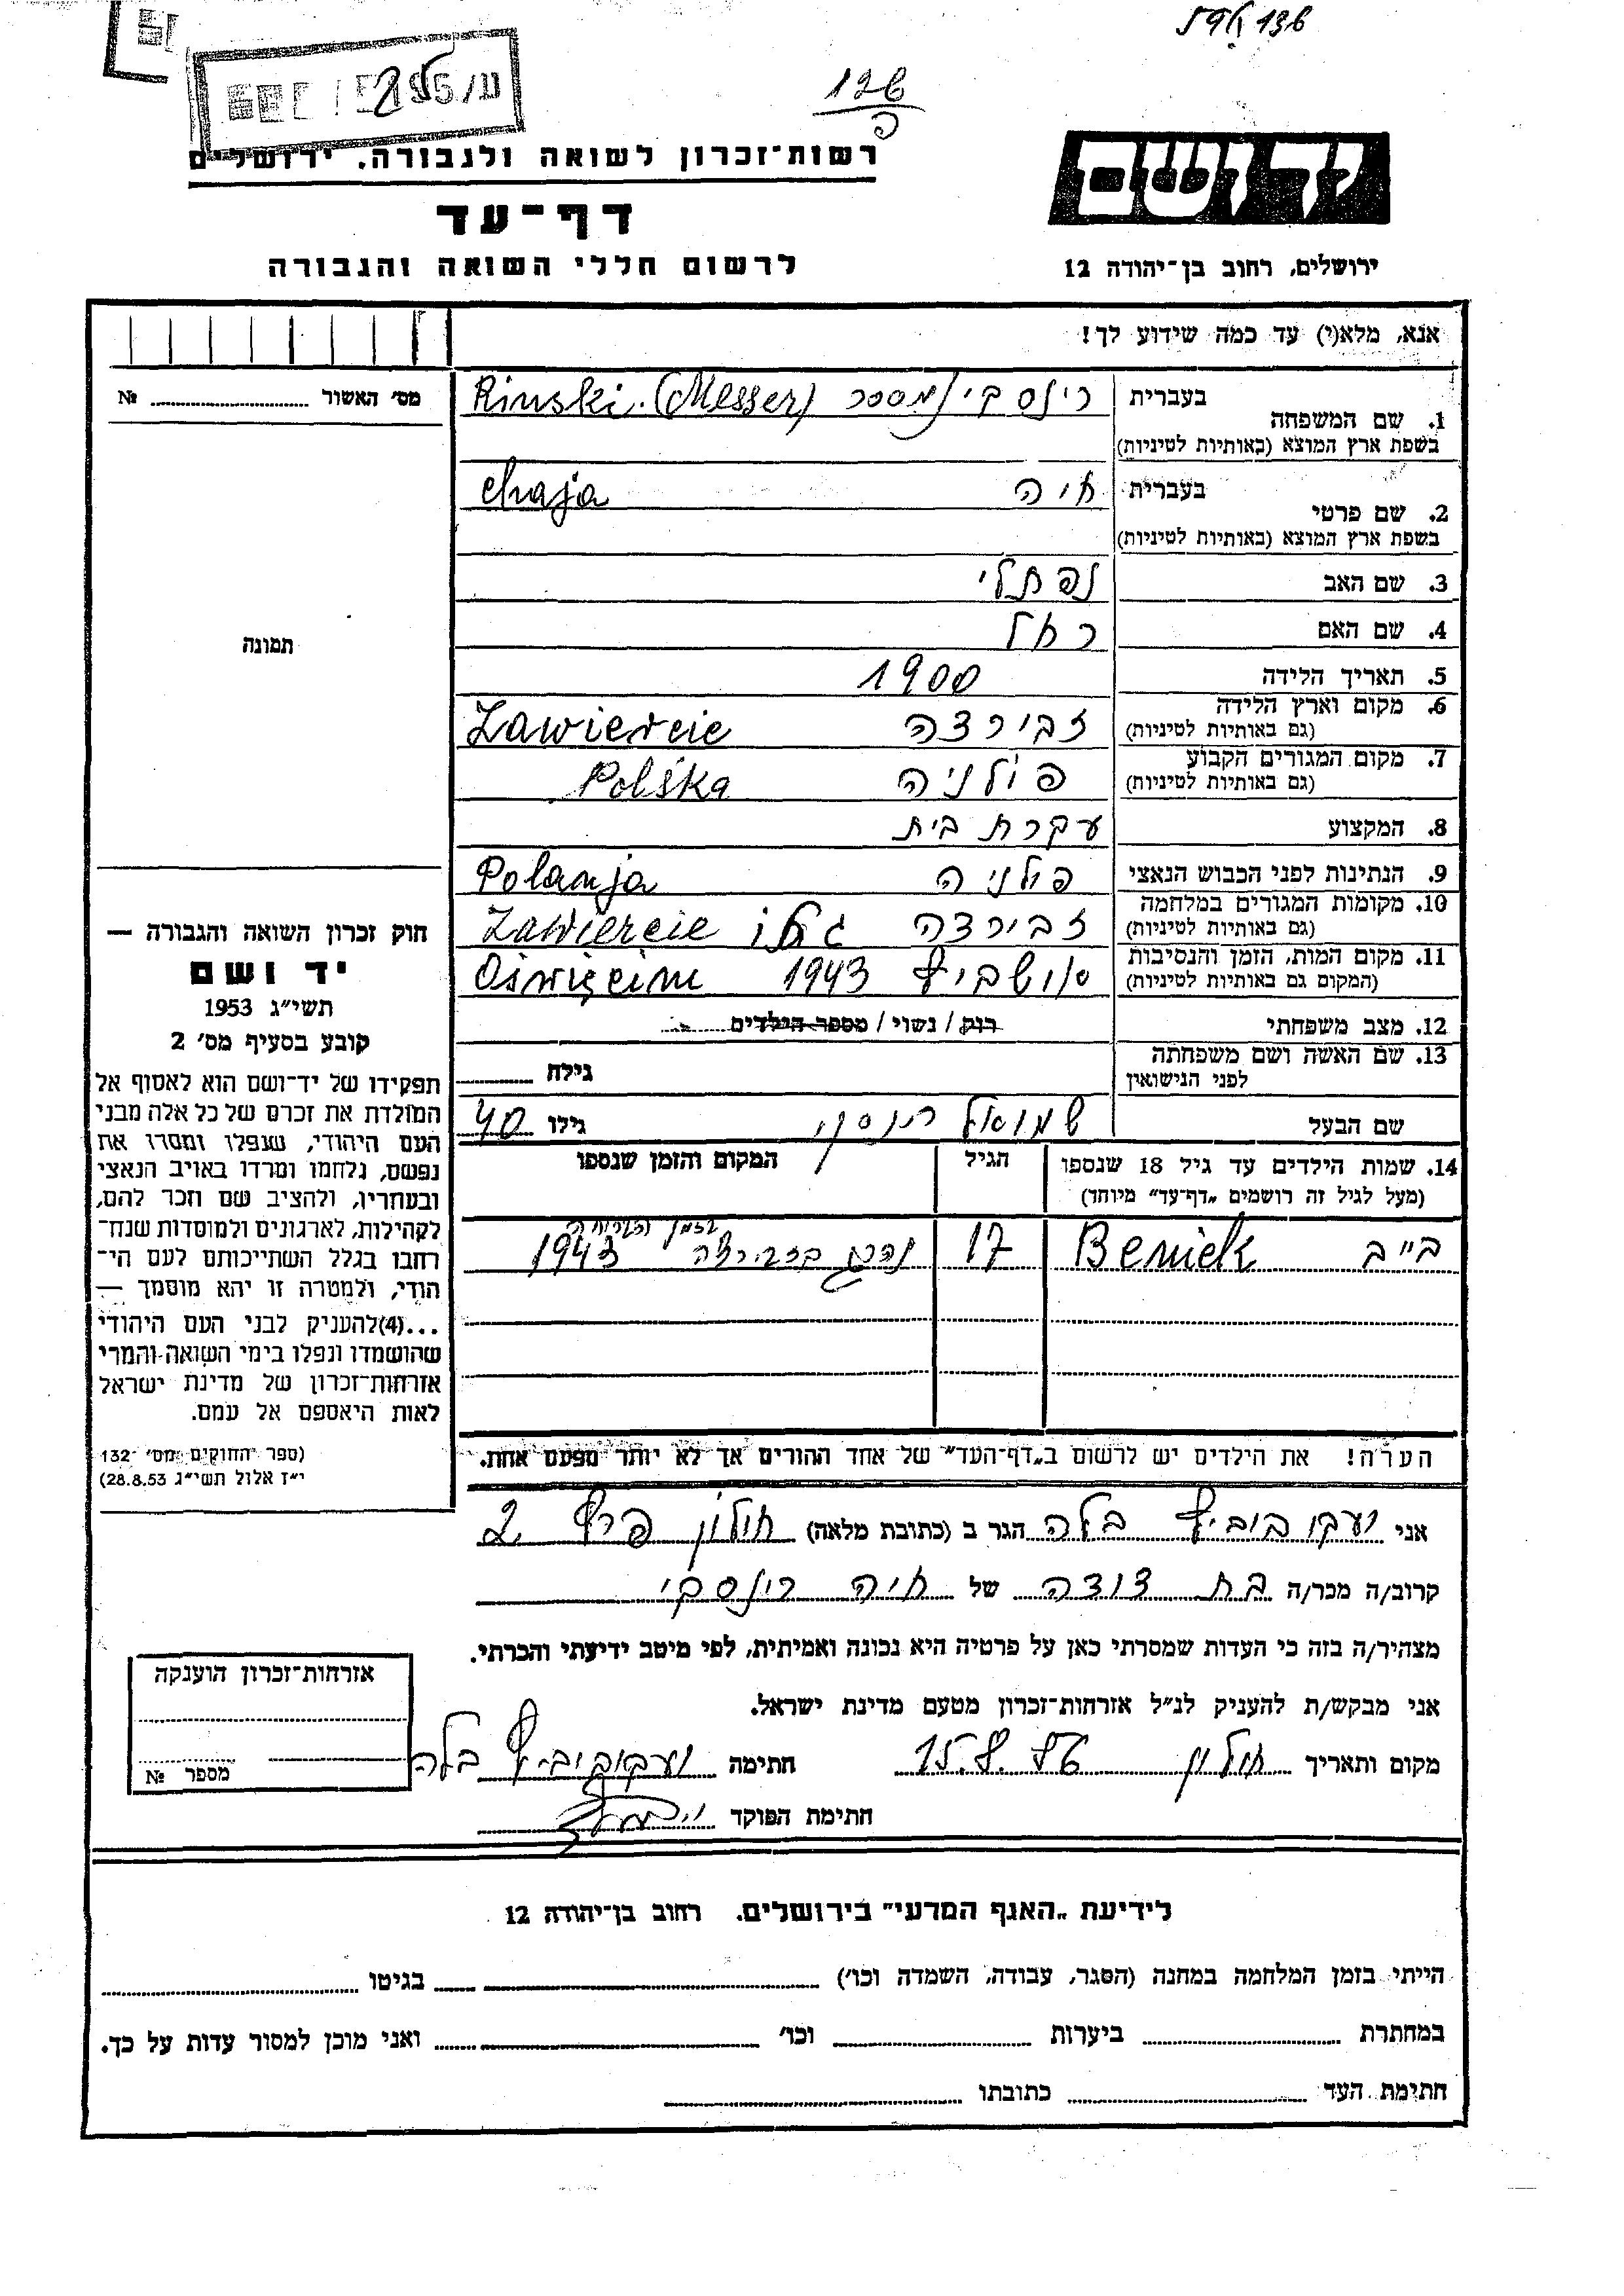 126
פ
יד ושם
רשות־זכרון לשואה ולגבורה. ירושלים
דף־עד
לרשום חללי השואה והגבורה
ירושלים, רחוב בן־יהודה 12
אנא, מלא(י) עד כמה שידוע לך!
מס׳ האשור № 
1. שם המשפחה בעברית רינסקי/מסר Rinski (Messer)
בשפת ארץ המוצא (באותיות לטיניות)
2. שם פרטי בעברית חיה Chaja
בשפת ארץ המוצא (באותיות לטיניות)
3. שם האב נפתלי
4. שם האם רחל
תמונה
5. תאריך הלידה 1900
6. מקום וארץ הלידה זבירצה Zawiercie
(גם באותיות לטיניות)
7. מקום המגורים הקבוע פולניה Polska
(גם באותיות לטיניות)
8. המקצוע עקרת בית
9. הנתינות לפני הכבוש הנאצי פולניה Polanja
10. מקומות המגורים במלחמה זבירצה גטו Zawiercie
(גם באותיות לטיניות)
11. מקום המות, הזמן והנסיבות 1943 Oświęcim
(המקום גם באותיות לטיניות)
12. מצב משפחתי רוק / נשוי / מספר הילדים
13. שם האשה ושם משפחתה
לפני הנישואין גילה
שם הבעל שמואל רינסקי גילו 40
14. שמות הילדים עד גיל 18 שנספו הגיל המקום והזמן שנספו
(מעל לגיל זה רושמים „דף־עד״ מיוחד)
Beniek 17 בזבירצה 1943
הערה! את הילדים יש לרשום ב„דף־העד״ של אחד ההורים אך לא יותר מפעם אחת.
חוק זכרון השואה והגבורה —
יד ושם
תשי״ג 1953
קובע בסעיף מס׳ 2
תפקידו של יד־ושם הוא לאסוף אל
המולדת את זכרם של כל אלה מבני
העם היהודי, שנפלו ומסרו את
נפשם, נלחמו ומרדו באויב הנאצי
ובעוזריו, ולהציב שם וזכר להם,
לקהילות, לארגונים ולמוסדות שנח־
רבו בגלל השתייכותם לעם הי־
הודי, ולמטרה זו יהא מוסמך —
...(4)להעניק לבני העם היהודי
שהושמדו ונפלו בימי השואה והמרי
אזרחות־זכרון של מדינת ישראל
לאות היאספם אל עמם.
(ספר החוקים מס׳ 132
י״ז אלול תשי״ג 28.8.53)
אני יעקובוביץ בלה הגר ב (כתובת מלאה) חולון פרץ 2
קרוב/ה מכר/ה בת דודה של חיה רינסקי
מצהיר/ה בזה כי העדות שמסרתי כאן על פרטיה היא נכונה ואמיתית, לפי מיטב ידיעתי והכרתי.
אני מבקש/ת להעניק לנ״ל אזרחות־זכרון מטעם מדינת ישראל.
מקום ותאריך חולון חתימה יעקובוביץ בלה
חתימת הפוקד
אזרחות־זכרון הוענקה
מספר №
לידיעת „האגף המדעי״ בירושלים. רחוב בן־יהודה 12
הייתי בזמן המלחמה במחנה (הסגר, עבודה, השמדה וכו׳) בגיטו
במחתרת ביערות וכו׳ ואני מוכן למסור עדות על כך.
חתימת העד כתובתו